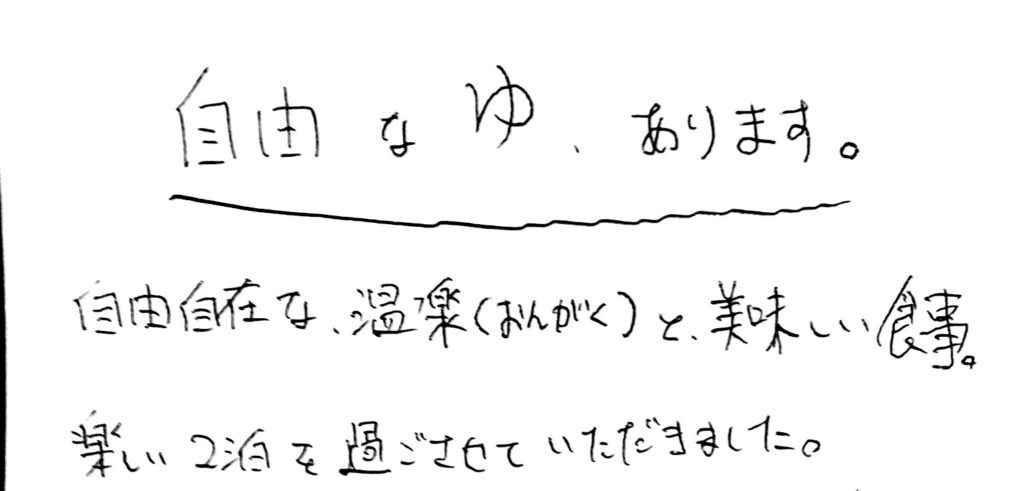 自由なゆ、あります。
自由自在な、温楽(おんがく)と、美味しい食事。
楽しい2泊を過ごさせていただきました。